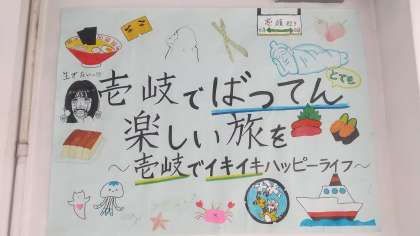 壱岐でばってん
楽しい旅を
～壱岐でイキイキハッピーライフ～
とても